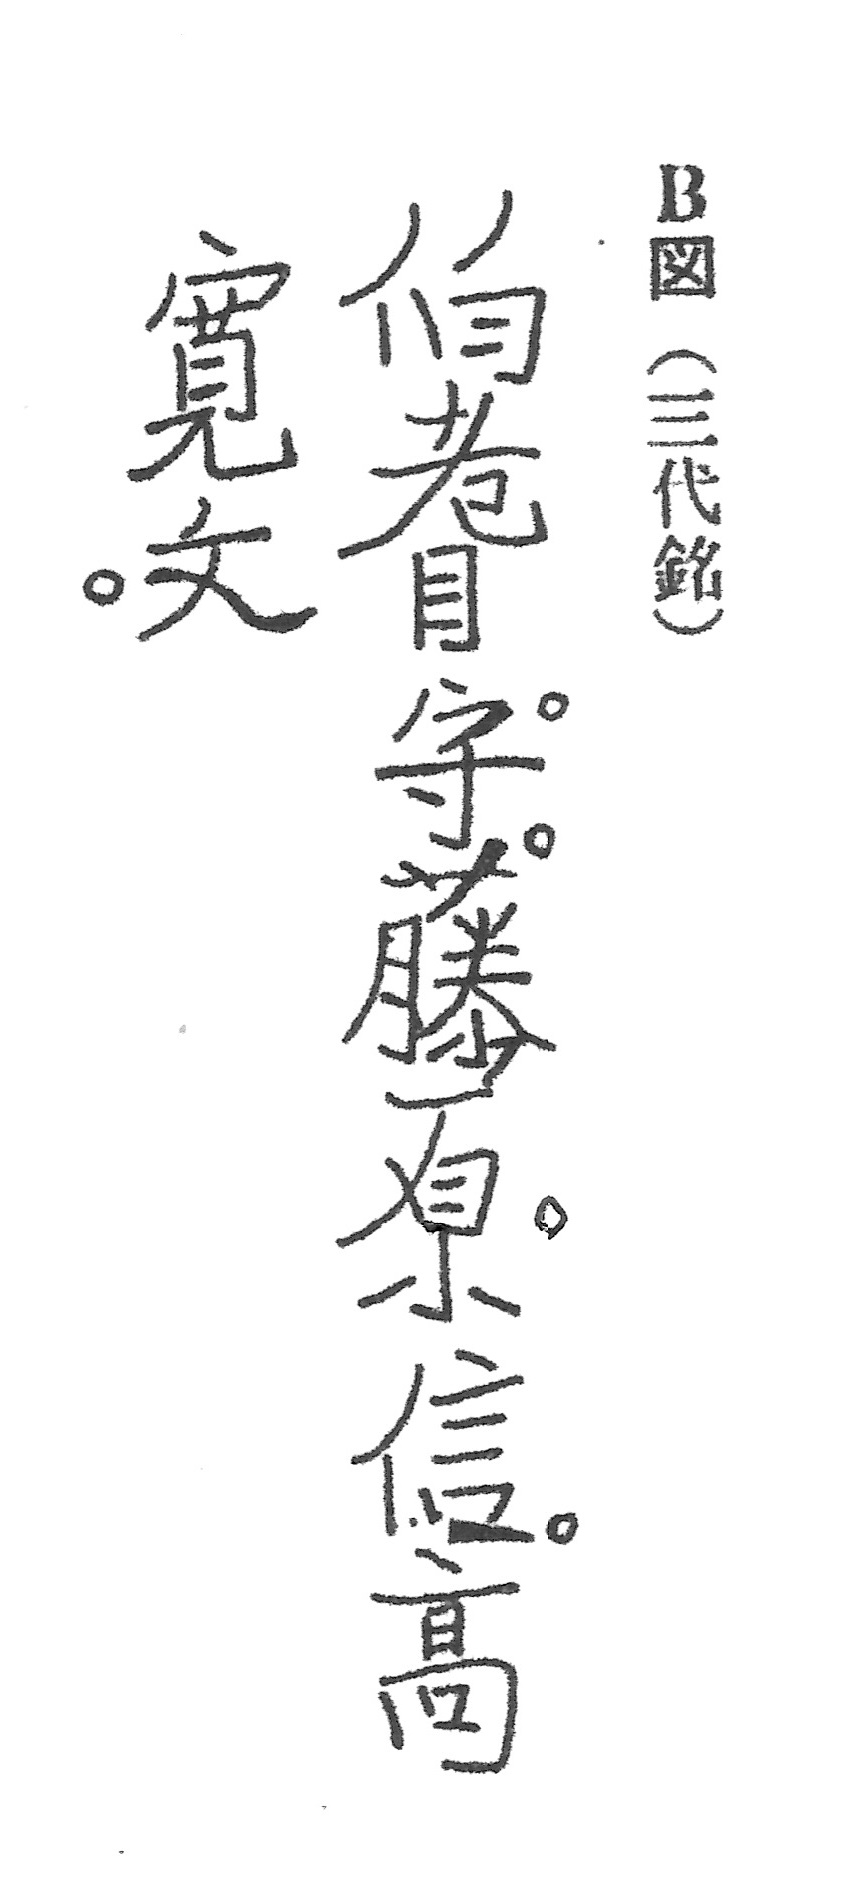 B図（三代銘）
伯耆守藤原信高
寛文